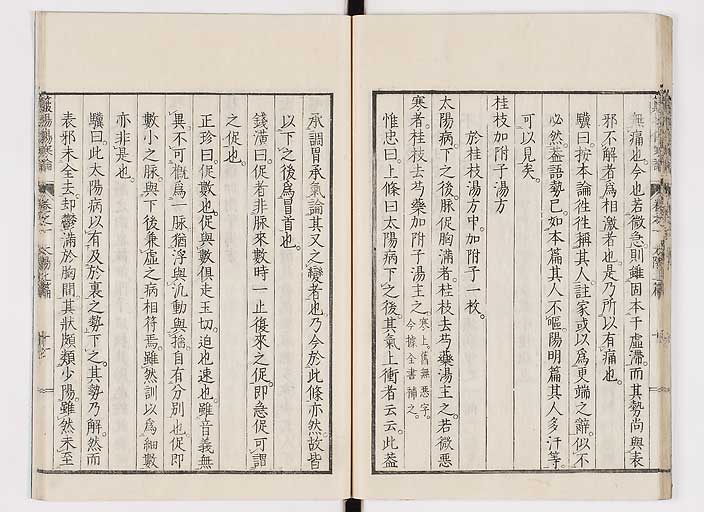 無痛也。今也若微急則雖固本于虛滯。而其勢尚與表
邪不解者。爲相激者也。是乃所以有痛也。
驥曰。按本論徃徃稱其人。註家或以爲更端之辭。似不
必然。蓋語勢已。如本篇其人不嘔。陽明篇其人多汗等。
可以見矣。
桂枝加附子湯方
於桂枝湯方中。加附子一枚。
太陽病。下之後。脈促胸滿者。桂枝去芍藥湯主之。若微惡
寒者。桂枝去芍藥加附子湯主之。寒上。舊無惡字。今據全書補之。
惟忠曰。上條曰太陽病下之後。其氣上衝者云云。此蓋
承調胃承氣論其又之變者也。乃今於此條亦然。故皆
以下之後爲冒首也。
錢潢曰。促者非脈來數時一止復來之促。即急促可謂
之促也。
正珍曰。促數也。促與數俱走玉切。迫也速也。雖音義無
異。不可概爲一脈。猶浮與汎。動與搖。自有分別也。促即
數小之脈。與下後兼虛之病相符焉。雖然訓以爲細數
亦非是也。
驥曰。此太陽病以有及於裏之勢下之。其勢乃解。然而
表邪未全去。却鬱滿於胸間。其狀頗類少陽。雖然未至